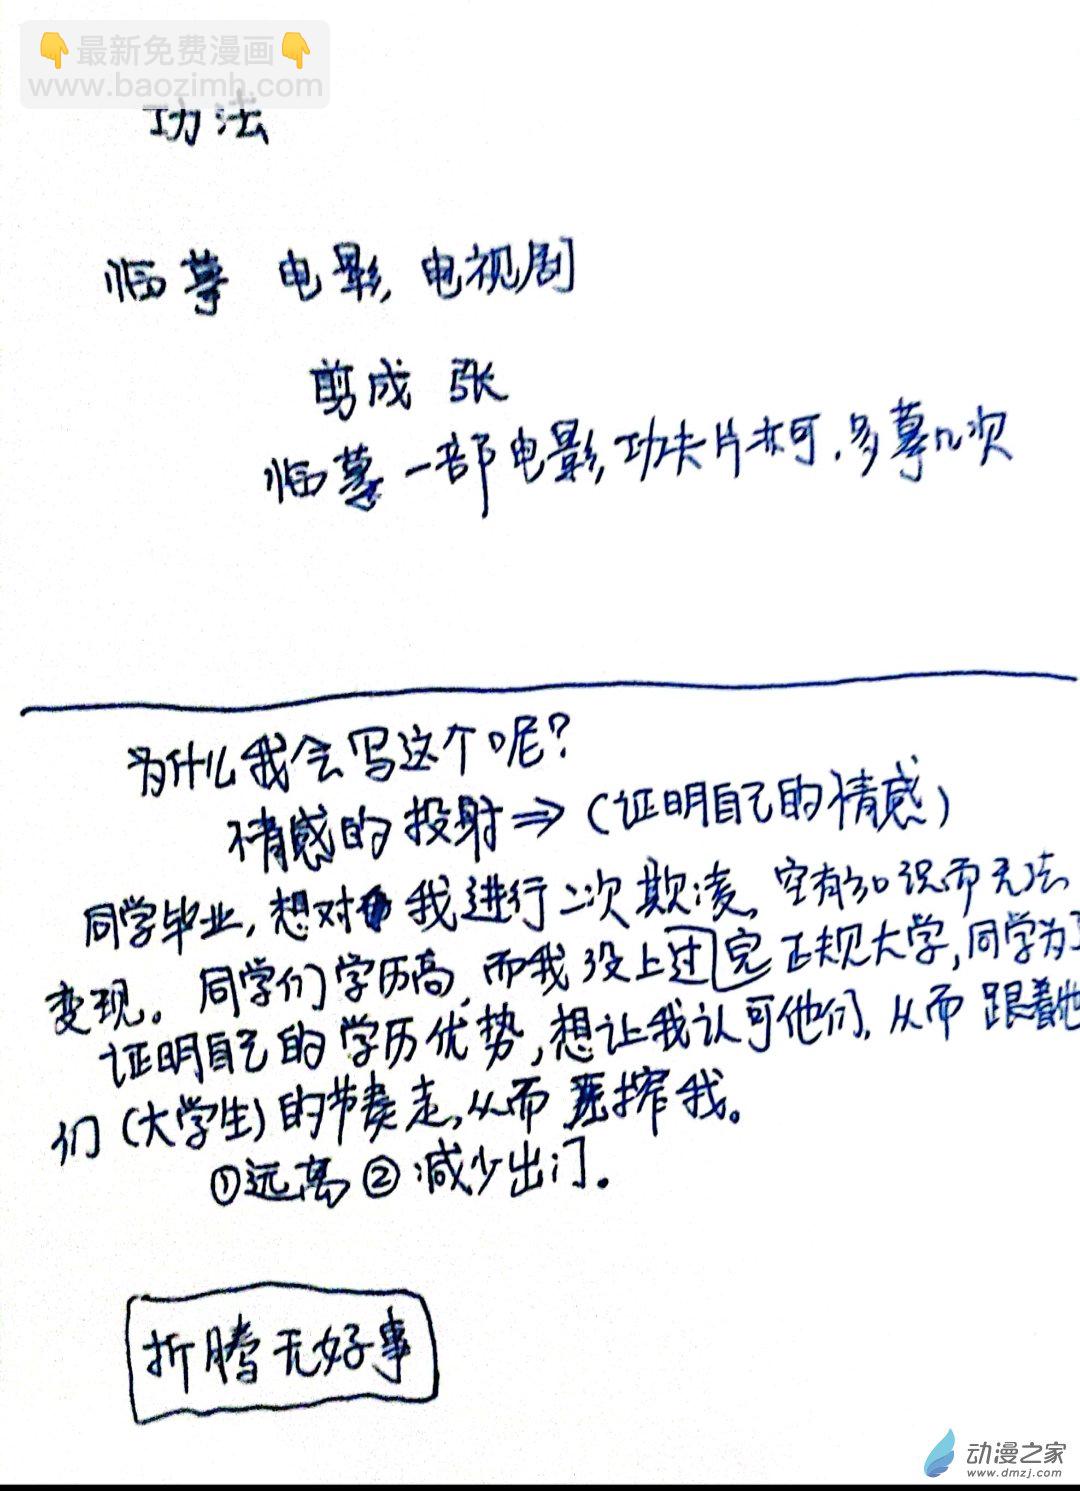 👇最新免费漫画👇
www.baozimh.com
功法
临摹 电影,电视剧
剪成 张
临摹一部电影,功夫片亦可.多摹几次
为什么我会写这个呢?
情感的投射⇒(证明自己的情感)
同学毕业,想对我进行二次欺凌,空有知识而无法
变现。同学们学历高,而我没上过完正规大学,同学为了
证明自己的学历优势,想让我认可他们,从而跟着他
们(大学生)的节奏走,从而压榨我。
①远离②减少出门.
折腾无好事
动漫之家
www.dmzj.com